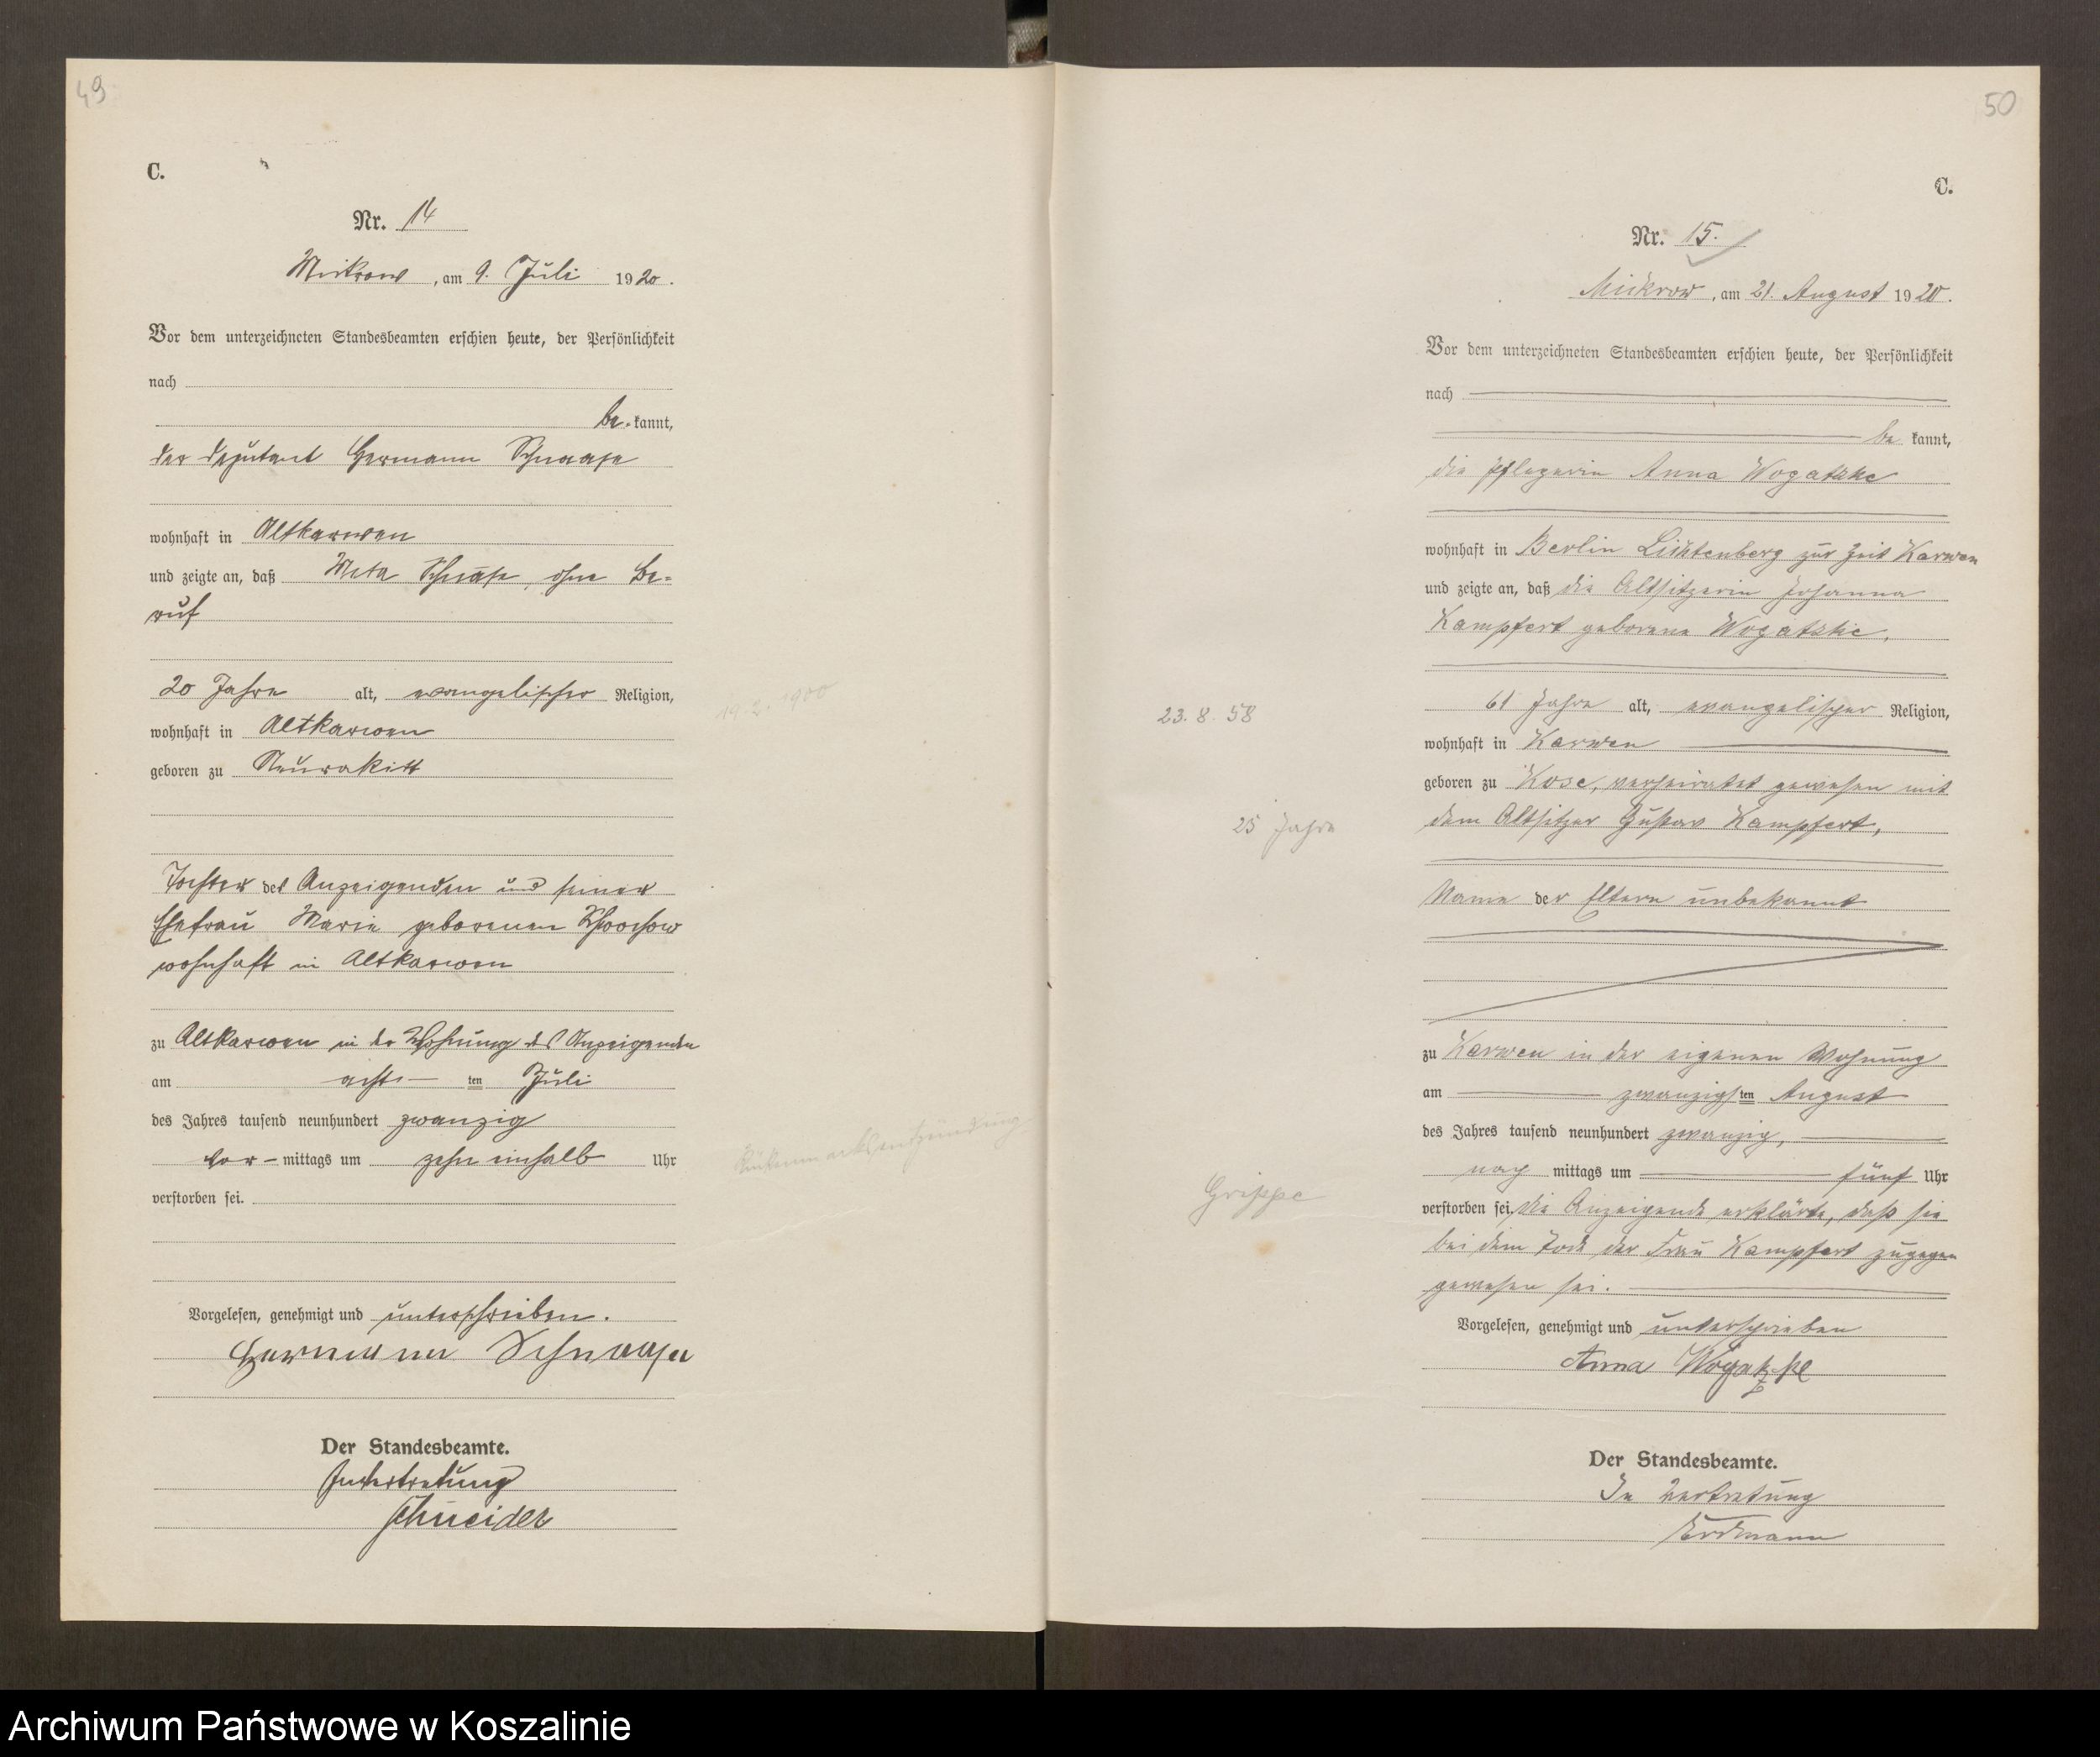 49
C.
Nr. 14
Mickrow, am 9. Juli 1920.
Vor dem unterzeichneten Standesbeamten erschien heute, der Persönlichkeit
nach
be-kannt,
der Deputant Hermann Schnaase
wohnhaft in Altkarwen
und zeigte an, daß Meta Schnase, ohne Be-
ruf
20 Jahre alt, evangelischer Religion,
19.2.1900
wohnhaft in Altkarwen
geboren zu Neurakitt
Tochter des Anzeigenden und seiner
Ehefrau Marie geborenen
wohnhaft in Altkarwen
zu Altkarwen in der Wohnung des Anzeigenden
am acht-ten Juli
des Jahres tausend neunhundert zwanzig
vor-mittags um zehn einhalb Uhr
Rückenmarksentzündung
verstorben sei.
Vorgelesen, genehmigt und unterschrieben.
Hermann Schnaase
Der Standesbeamte.
In Vertretung
Schneider
50
C.
Nr. 15.
Mickrow, am 21. August 1920.
Vor dem unterzeichneten Standesbeamten erschien heute, der Persönlichkeit
nach
be kannt,
die Pflegerin Anna Wogatzke
wohnhaft in Berlin Lichtenberg zur Zeit Karwen
und zeigte an, daß die Altsitzerin Johanna
Kampfert geborene Wogatzke,
61 Jahre alt, evangelischer Religion,
23. 8. 58
wohnhaft in Karwen
geboren zu Kose, verheiratet gewesen mit
dem Altsitzer Gustav Kampfert,
25 Jahre
Name der Eltern unbekannt
zu Karwen in der eigenen Wohnung
am zwanzigsten August
des Jahres tausend neunhundert zwanzig,
nach mittags um fünf Uhr
Grippe
verstorben sei, die Anzeigende erklärte, daß sie
bei dem Tode der Frau Kampfert zugegen
gewesen sei.
Vorgelesen, genehmigt und unterschrieben
Anna Wogatzke
Der Standesbeamte.
In Vertretung
Erdmann
Archiwum Państwowe w Koszalinie